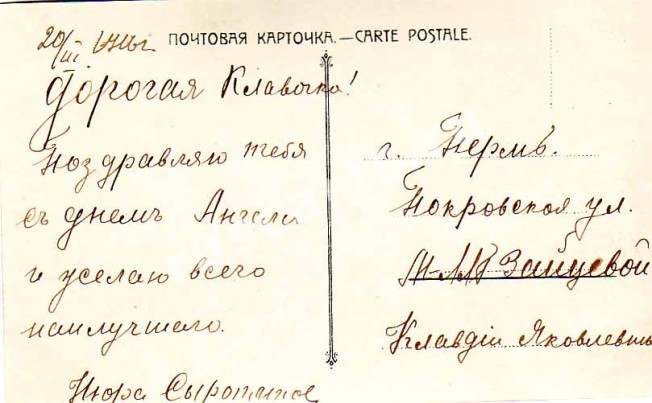 20/III
ПОЧТОВАЯ КАРТОЧКА.—CARTE POSTALE.
Дорогая Клавочка!
Поздравляю тебя
съ днемъ Ангела
и желаю всего
наилучшаго.
Нюра
г. Пермь.
Покровская ул.
Зайцевой
Клавдiи Яковлевнѣ